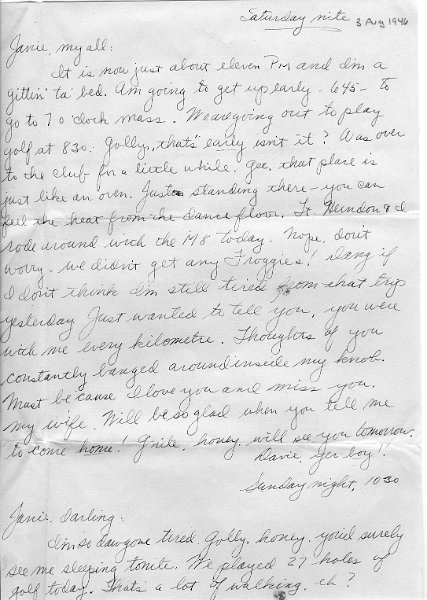 Saturday nite 3 Aug 1946
Janie, my all:
It is now just about eleven PM and I'm a
gittin' ta bed. Am going to get up early - 645 - to
go to 7 o'clock mass. We are going out to play
golf at 830. Golly, that's early isn't it? Was over
to the club for a little while. Gee, that place is
just like an oven. Just standing there - you can
feel the heat from the dance floor. Lt. Herndon & I
rode around with the M8 today. Nope, don't
worry. We didn't get any Froggies! Dang if
I don't think I'm still tired from that trip
yesterday. Just wanted to tell you, you were
with me every kilometre. Thoughts of you
constantly banged around inside my knob.
Must be cause I love you and miss you.
my wife. Will be so glad when you tell me
to come home! G'nite, honey, will see you tomorrow.
Davie, Yer boy!
Sunday night, 1030
Janie, Darling.
I'm so dawgone tired. Golly, honey, you'd surely
see me sleeping tonite. We played 27 holes of
golf today. That's a lot of walking, eh?